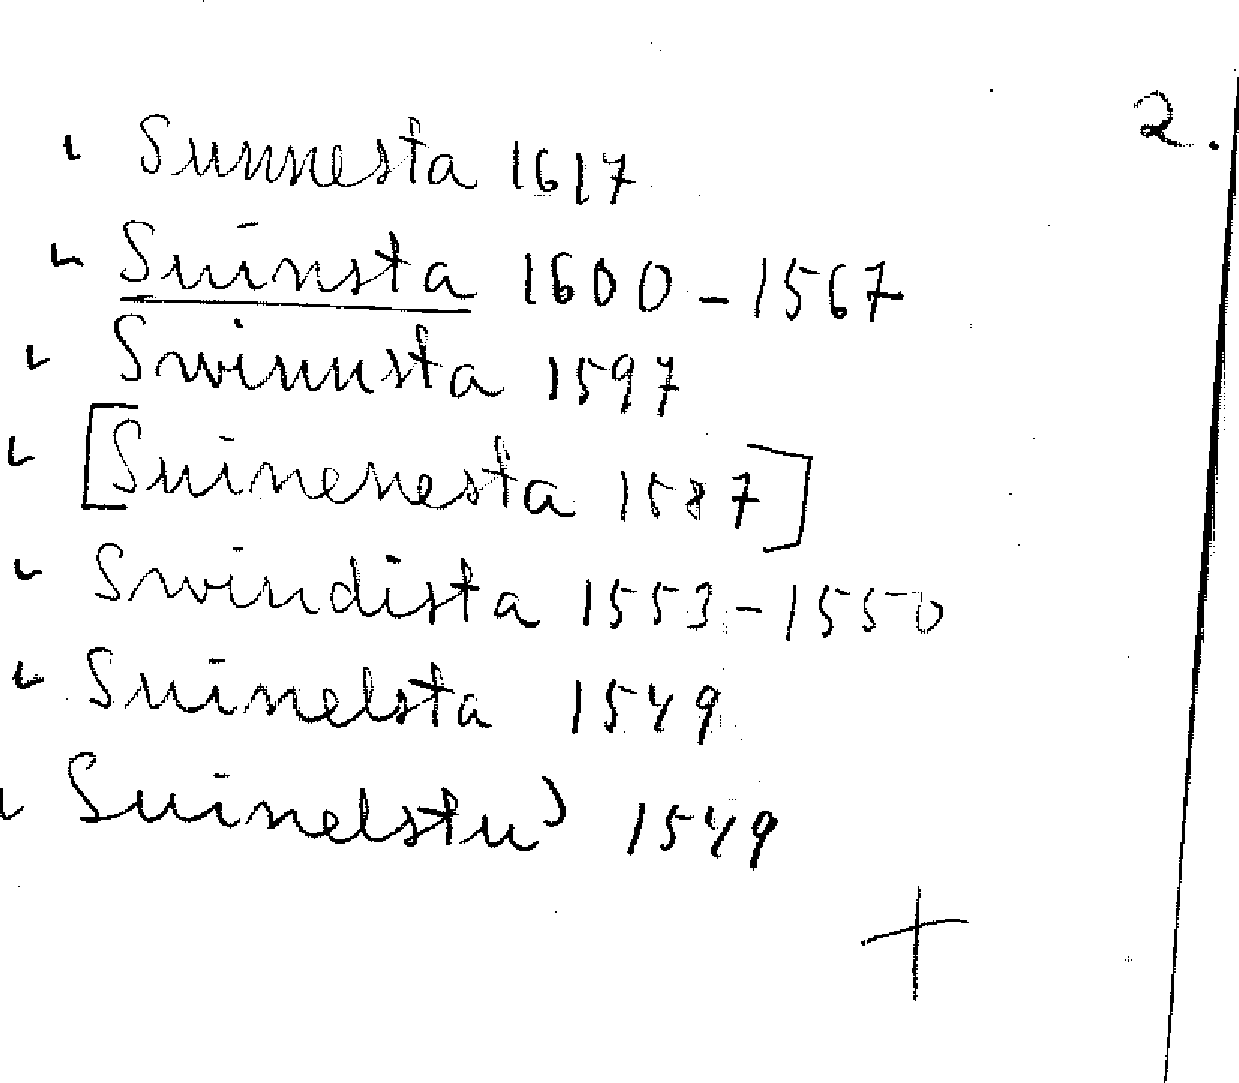 2.
Sunnesta 1617
Suinsta 1600-1567
Swinusta 1597
[Suinenesta 1587]
Swindista 1553-1550
Suinelsta 1549
Suinelstu) 1549
+